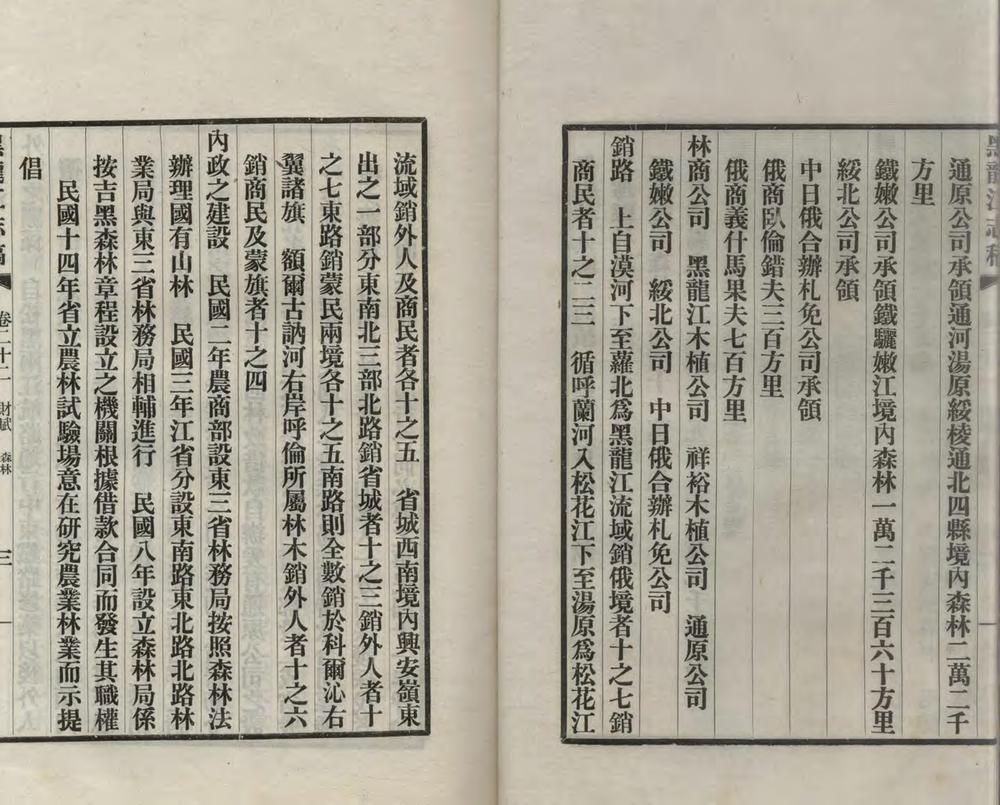 黑龍江志稿
通原公司承領通河湯原綏棱通北四縣境內森林二萬二千
方里
鐵嫩公司承領鐵驪嫩江境內森林一萬二千三百六十方里
綏北公司承領
中日俄合辦札免公司承領
俄商臥倫錯夫三百方里
俄商義什馬果夫七百方里
林商公司 黑龍江木植公司 祥裕木植公司 通原公司
鐵嫩公司 綏北公司 中日俄合辦札免公司
銷路 上自漠河下至蘿北爲黑龍江流域銷俄境者十之七銷
商民者十之二三 循呼蘭河入松花江下至湯原爲松花江
流域銷外人及商民者各十之五 省城西南境內興安嶺東
出之一部分東南北三部北路銷省城者十之三銷外人者十
之七東路銷蒙民兩境各十之五南路則全數銷於科爾沁右
翼諸旗 額爾古訥河右岸呼倫所屬林木銷外人者十之六
銷商民及蒙旗者十之四
內政之建設 民國二年農商部設東三省林務局按照森林法
辦理國有山林 民國三年江省分設東南路東北路北路林
業局與東三省林務局相輔進行 民國八年設立森林局係
按吉黑森林章程設立之機關根據借款合同而發生其職權
民國十四年省立農林試驗場意在研究農業林業而示提
倡
黑龍江志稿 卷二十一 財賦 森林 三